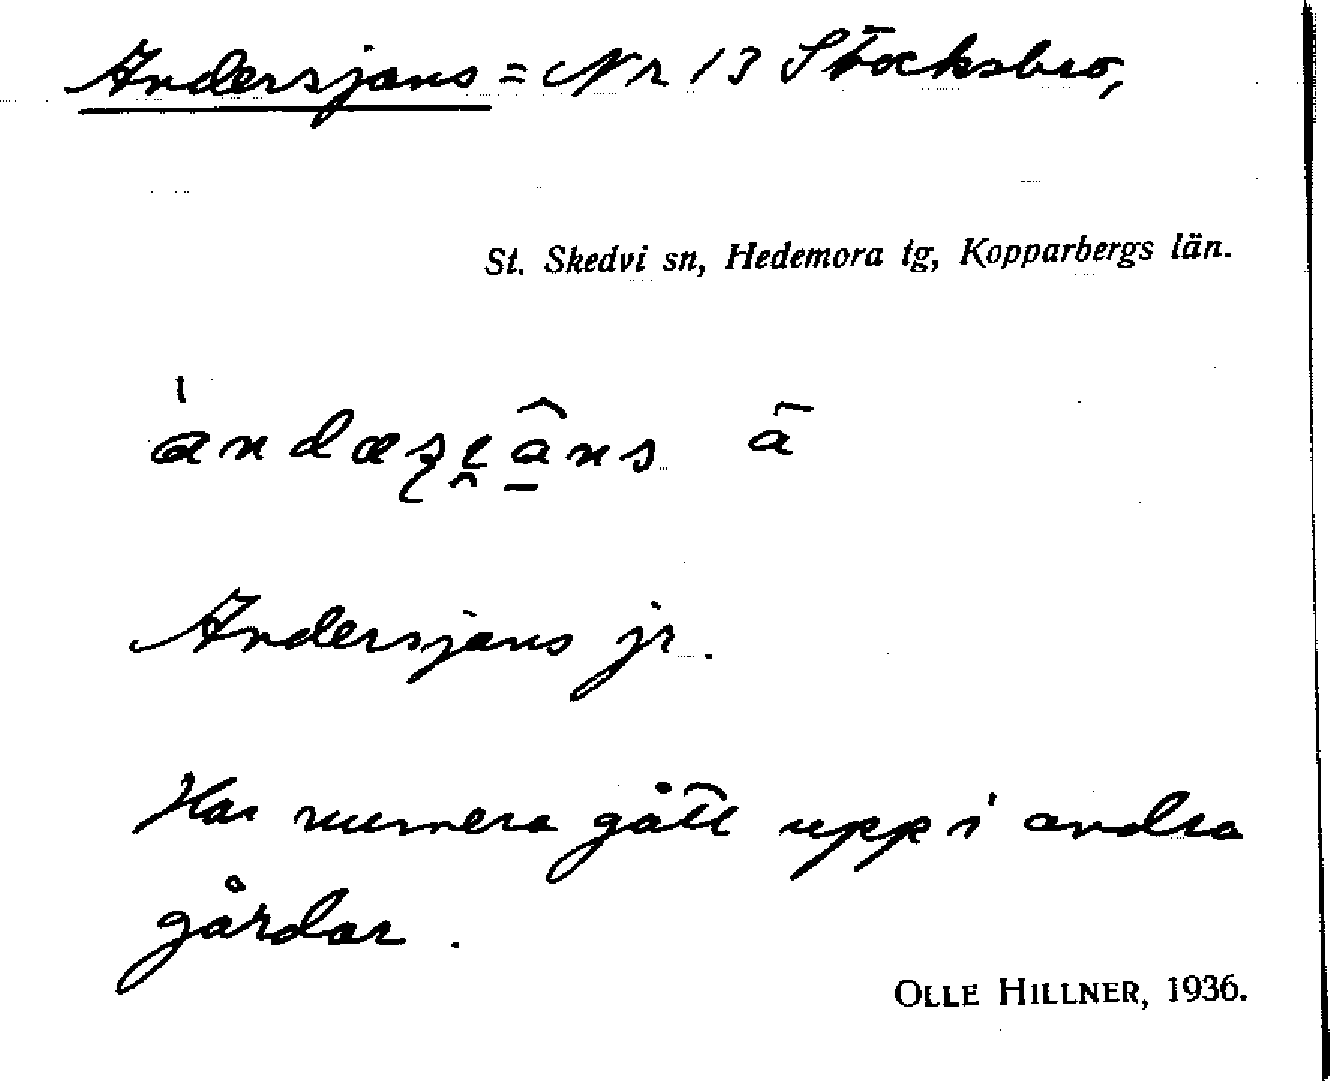 Andersjans = Nr 13 Stocksbro,
St. Skedvi sn, Hedemora tg, Kopparbergs län.
Andersjans jr.
Har numera gått upp i andra
gårdar.
OLLE HILLNER, 1936.